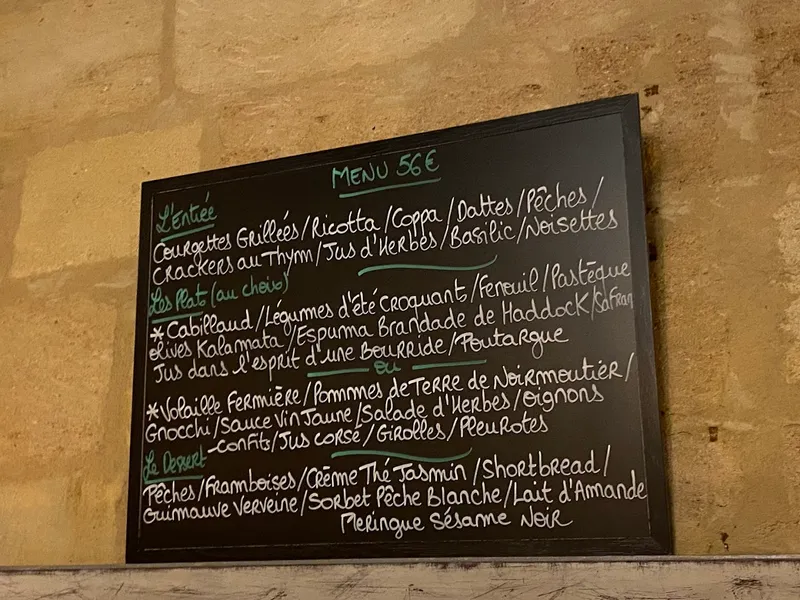 MENU 56€
L'Entrée
Courgettes Grillées/Ricotta/Coppa/Dattes/Pêches/
Crackers au Thym/Jus d'Herbes/Basilic/Noisettes
Les Plats (au choix)
*Cabillaud/Légumes d'été croquant/Fenouil/Pastèque
olives Kalamata/Espuma Brandade de Haddock/Safran
Jus dans l'esprit d'une Bourride/Poutargue
ou
*Volaille Fermière/Pommes de Terre de Noirmoutier/
Gnocchi/Sauce Vin Jaune/Salade d'Herbes/oignons
-confits/Jus corsé/Girolles/Pleurotes
Le Dessert
Pêches/Framboises/Crème Thé Jasmin/Shortbread/
Guimauve Verveine/Sorbet Pêche Blanche/Lait d'Amande
Meringue Sésame Noir